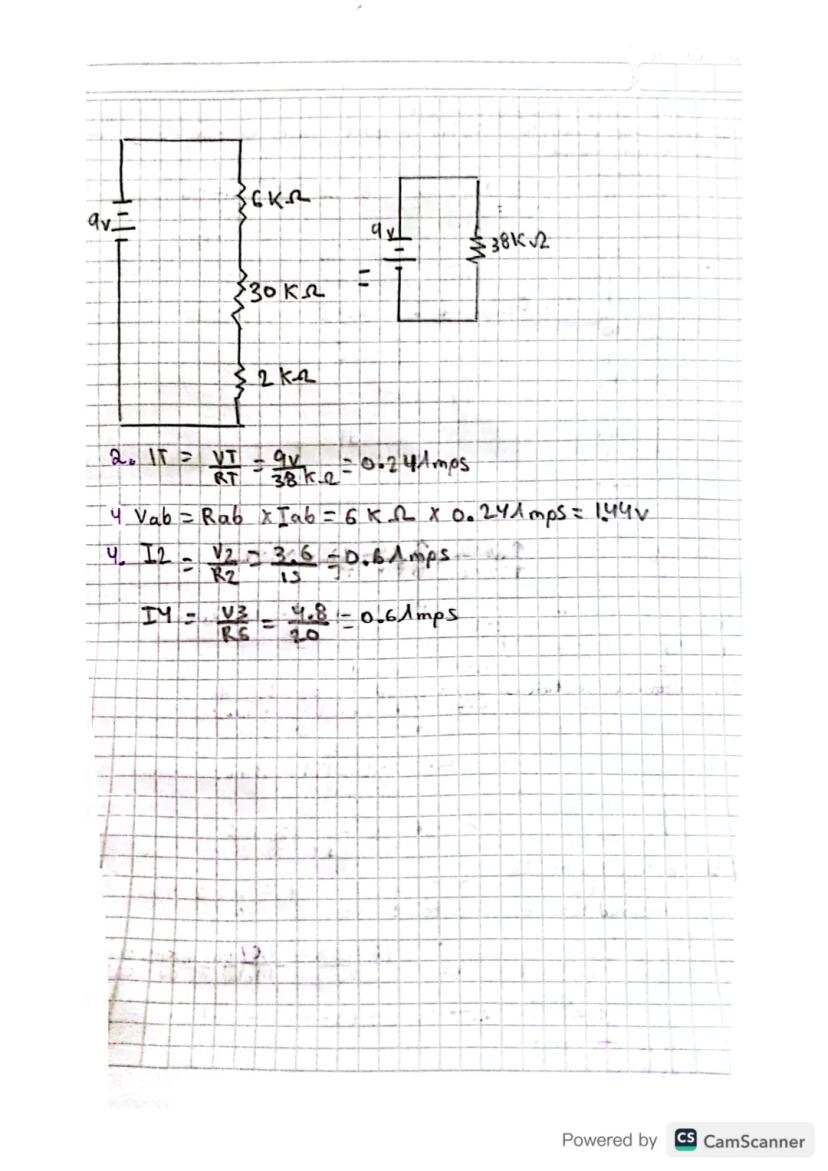 9v
6KΩ
30 KΩ
2 KΩ
=
9v
38KΩ
2. IT = VT/RT = 9v/38 KΩ = 0.24Amps
4 Vab = Rab x Iab = 6 KΩ x 0.24Amps = 1.44v
4. I2 = V2/R2 = 3.6/15 = 0.6Amps
I4 = V3/R6 = 4.8/20 = 0.6Amps
Powered by CS CamScanner